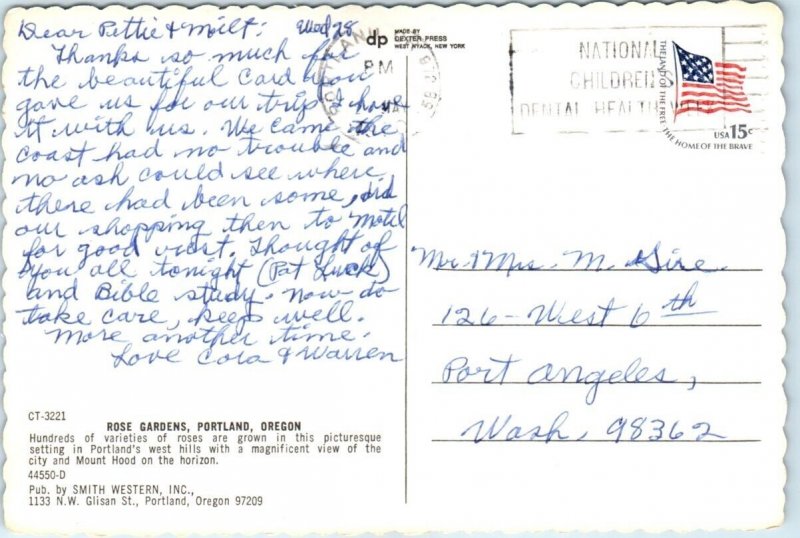 Dear Pettie & Milt: Wed 28
Thanks so much for
the beautiful Card you
gave us for our trip & have
it with us. We came the
coast had no trouble and
no ash could see where
there had been some, did
our shopping then to Motel
for good rest. Thought of
you all tonight (Pot Luck)
and Bible study. Now do
take care, keep well.
More another time.
Love Cora & Warren
CT-3221
ROSE GARDENS, PORTLAND, OREGON
Hundreds of varieties of roses are grown in this picturesque
setting in Portland's west hills with a magnificent view of the
city and Mount Hood on the horizon.
44550-D
Pub. by SMITH WESTERN, INC.,
1133 N.W. Glisan St., Portland, Oregon 97209
dp
MADE BY
DEXTER PRESS
WEST NYACK, NEW YORK
PM
NATIONAL
CHILDREN'S
DENTAL HEALTH WEEK
THE LAND OF THE FREE
THE HOME OF THE BRAVE
USA 15c
Mr & Mrs. M. Sire
126-West 6th
Port Angeles,
Wash, 98362